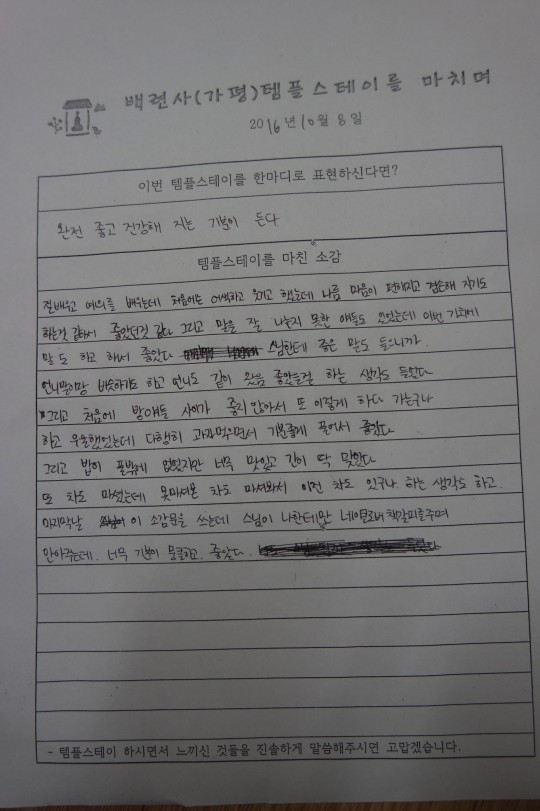 백련사(가평)템플스테이를 마치며
2016년 10월 8일
이번 템플스테이를 한마디로 표현하신다면?
완전 좋고 건강해 지는 기분이 든다
템플스테이를 마친 소감
절배우고 예의를 배우는데 처음에는 어색하고 웃기고 했는데 나름 마음이 편해지고 겸손해 지기도
하는것 같아서 좋았던것 같다 그리고 말을 잘 나누지 못한 얘들도 있었는데 이번 기회에
말도 하고 해서 좋았다 스님한테 좋은 말도 들으니까
언니말이랑 비슷하기도 하고 언니도 같이 왔음 좋았을걸 하는 생각도 들었다
그리고 처음에 방애들 사이가 좋지 않아서 또 이렇게 하다 가는구나
하고 우울했었는데 다행히 과자먹으면서 기분좋게 풀어서 좋았다
그리고 밥이 풀밖에 없었지만 너무 맛있고 간이 딱 맞았다
또 차도 마셨는데 못마셔본 차도 마셔봐서 이런 차도 있구나 하는 생각도 하고.
마지막날 이 소감문을 쓰는데 스님이 나한테만 네잎클로버 책갈피를주며
안아주는데. 너무 기분이 뭉클하고. 좋았다.
- 템플스테이 하시면서 느끼신 것들을 진솔하게 말씀해주시면 고맙겠습니다.